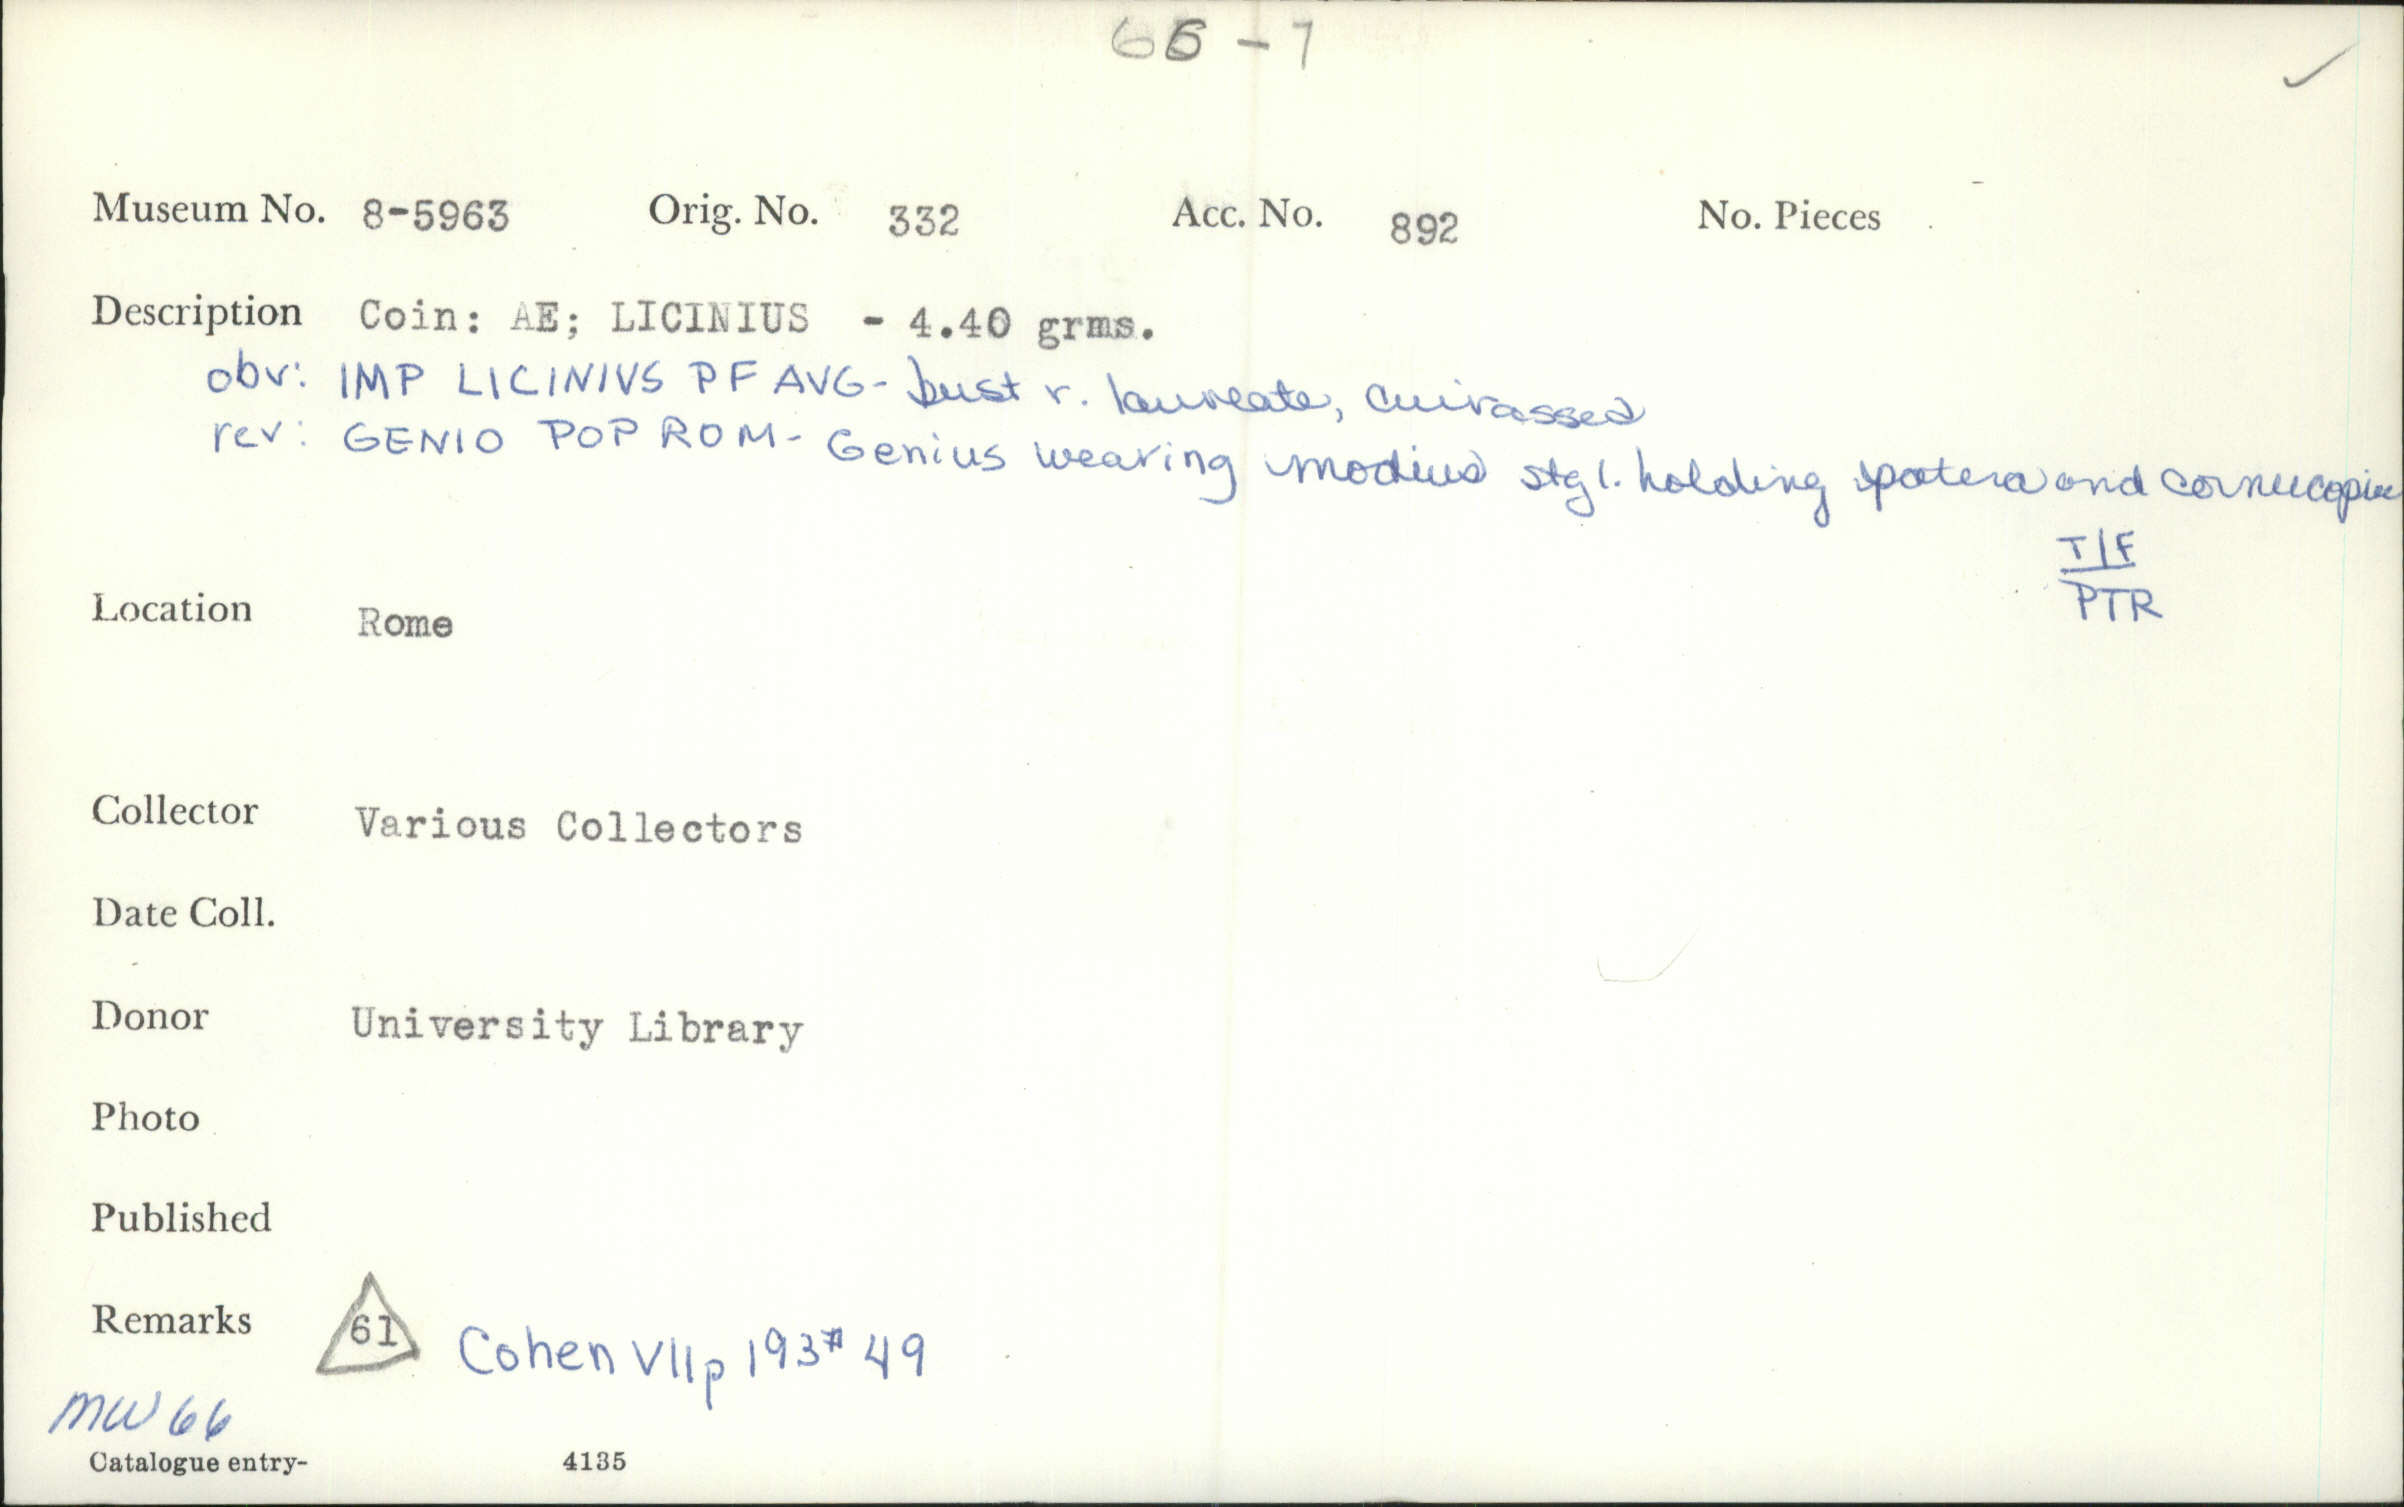 66 - 7
Museum No. 8-5963 Orig. No. 332 Acc. No. 892 No. Pieces
Description Coin: AE; LICINIUS - 4.40 grms.
obv: IMP LICINIVS PF AVG - bust r. laureate, cuirassed
rev: GENIO POP ROM - Genius wearing modius stg l. holding patera and cornucopiae
T|F
PTR
Location Rome
Collector Various Collectors
Date Coll.
Donor University Library
Photo
Published
Remarks 61 Cohen VII p 193 # 49
MW 66
Catalogue entry- 4135